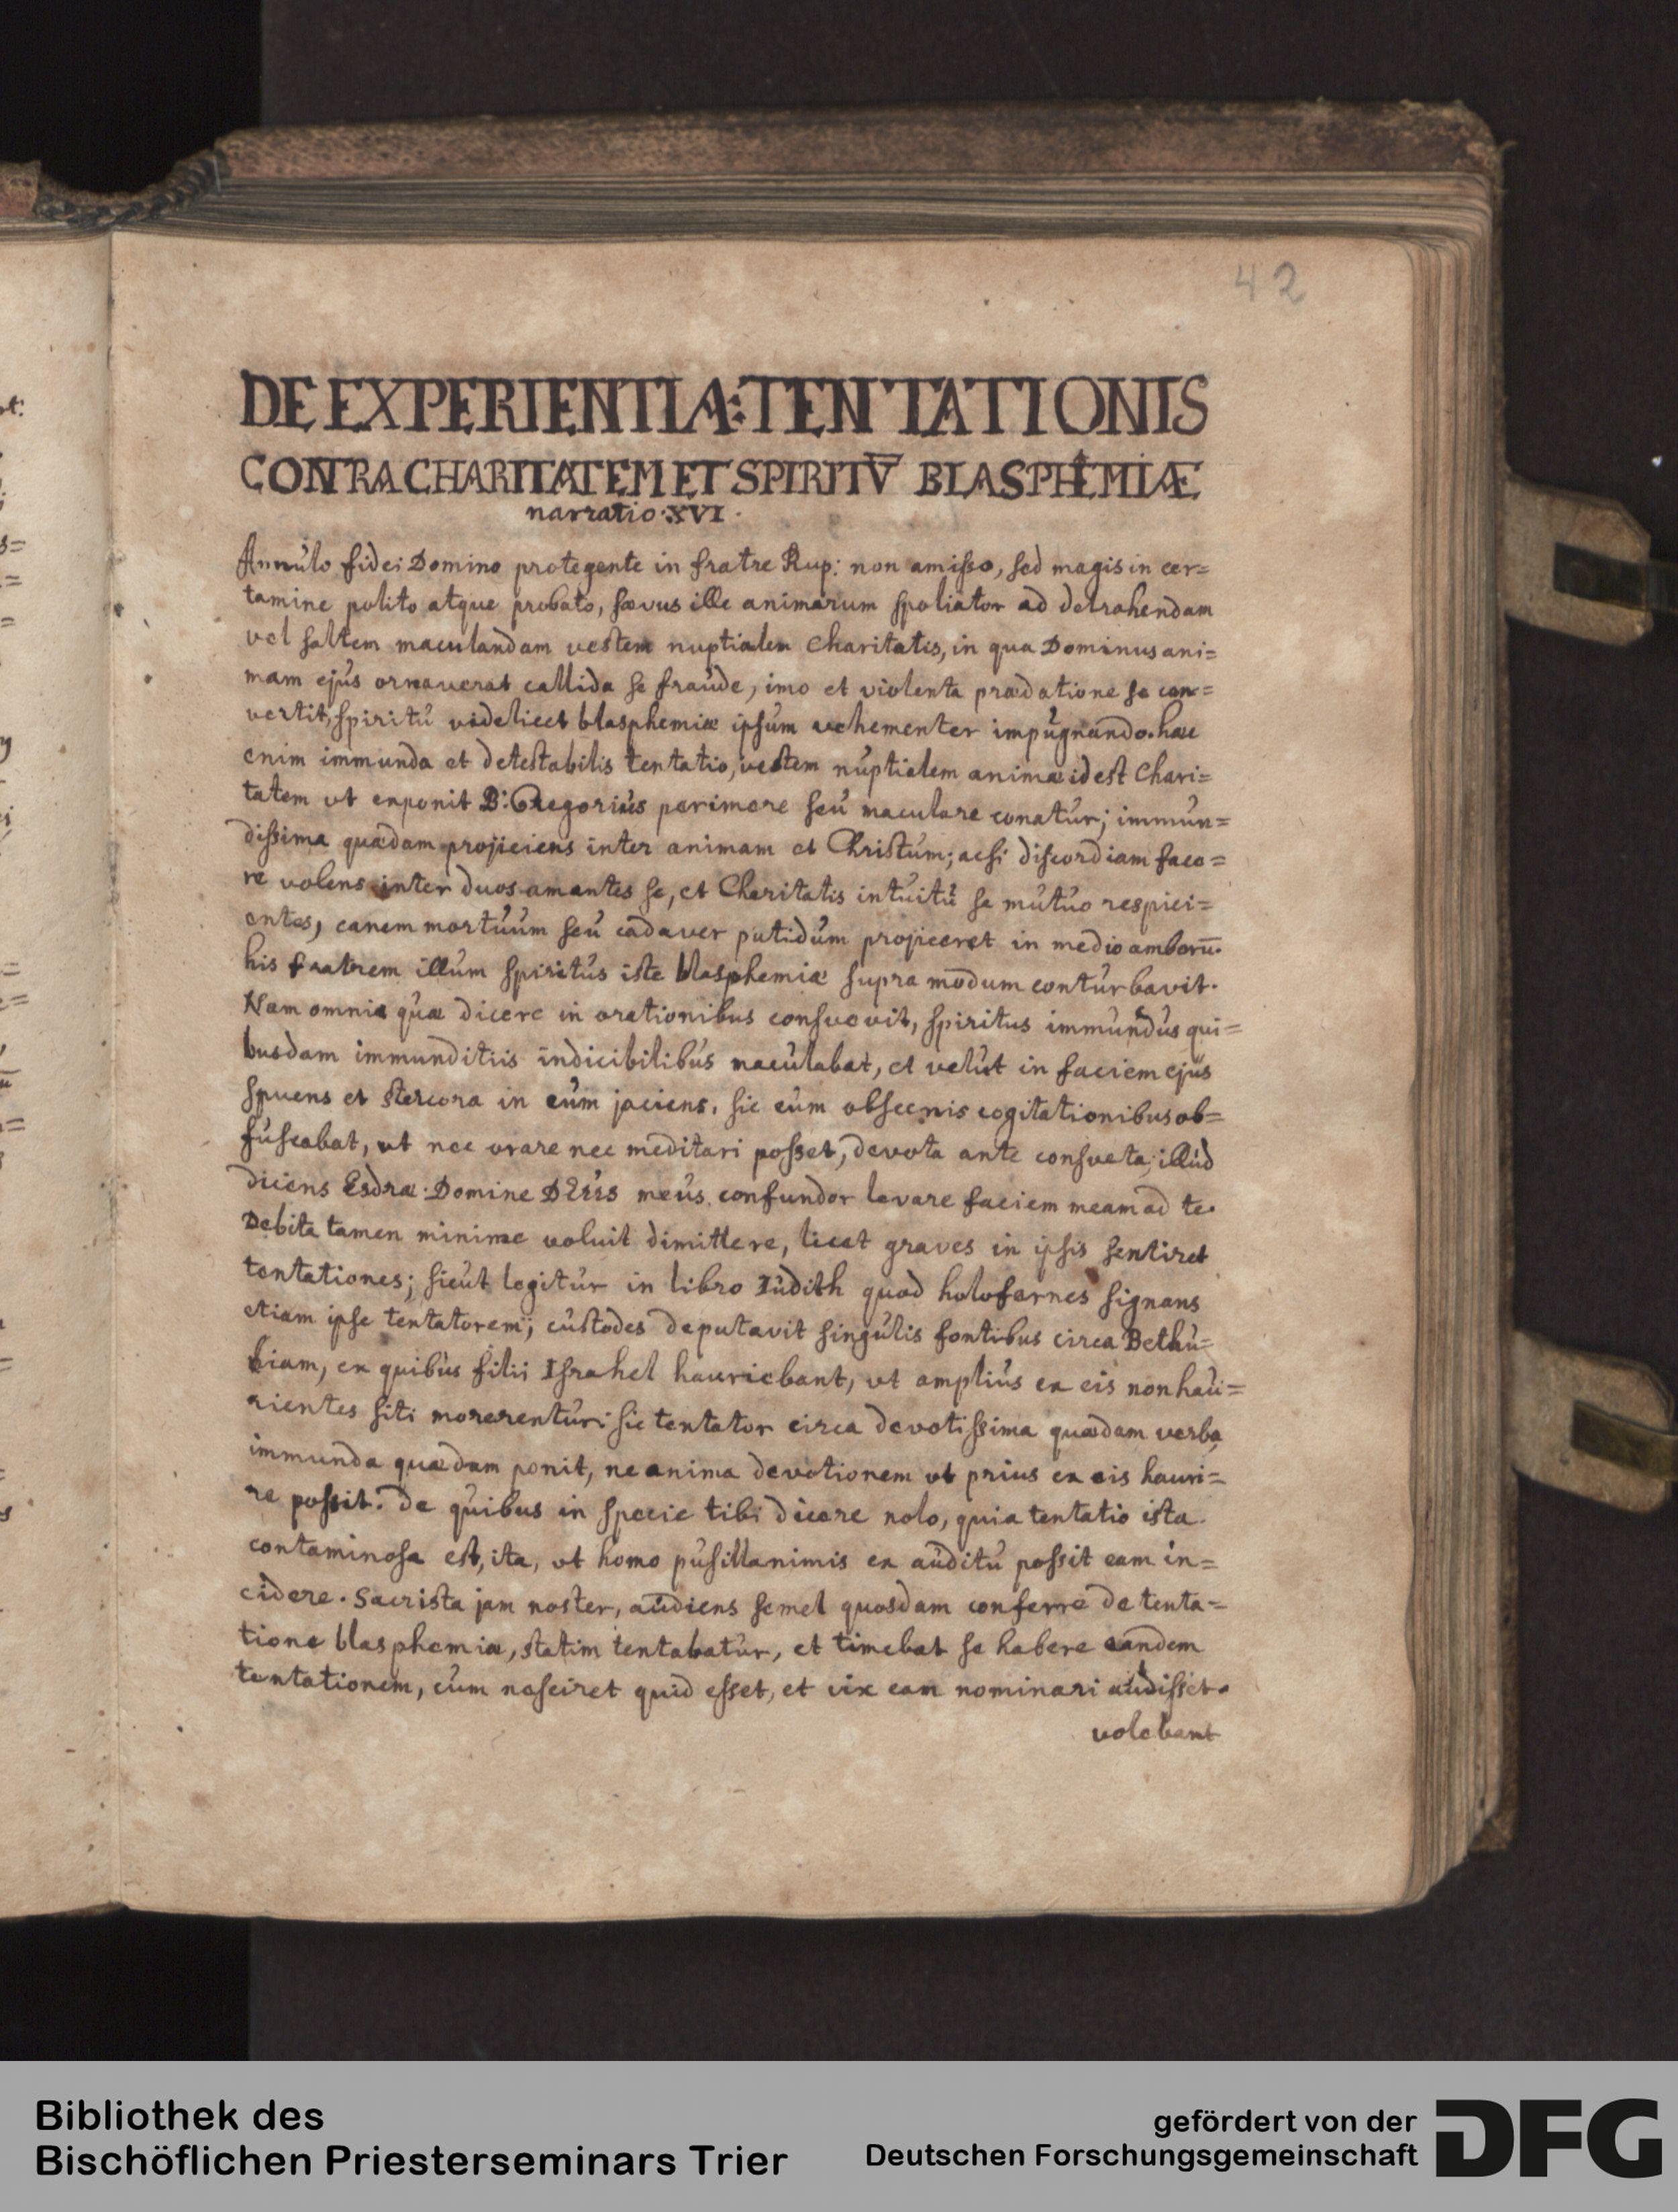 42
DE EXPERIENTIA: TENTATIONIS
CONTRA CHARITATEM ET SPIRITV̅ BLASPHEMIÆ
narratio: XVI.
Annúlo fidei Domino protegente in fratre Rup: non amisso, sed magis in cer=
tamine polito atque probato, sævus ille animarum spoliator ad detrahendam
vel saltem maculandam vestem nuptialem charitatis, in qua Dominus ani=
mam ejús ornaverat callida se fraúde, imo et violenta prædatione se con=
vertit, spiritú videlicet blasphemiæ ipsúm vehementer impúgnando. hæc
enim immunda et detestabilis tentatio, vestem núptialem animæ id est Chari=
tatem vt exponit B: Gregoriús perimere seú maculare conatúr; immún=
dissima quædam projiciens inter animam et Christum; acsi discordiam face=
re volens inter duos amantes se, et Charitatis intúitú se mútúo respici=
entes, canem mortúúm seú cadaver putidúm projiceret in medio amborū.
his fratrem illúm spiritús iste blasphemiæ supra modum contúrbavit.
Nam omnia quæ dicere in orationibus consuevit, spiritus immúndús qui=
busdam immunditiis indicibilibús maculabat, et velút in faciem ejús
spuens et stercora in eúm jaciens, sic eúm obscenis cogitationibus ob=
fúscabat, vt nec orare nec meditari posset, devota ante consueta; illúd
dicens Esdræ: Domine DEÚS meús confundor levare faciem meam ad te.
Debita tamen minime voluit dimittere, licet graves in ipsis sentiret
tentationes; sicút legitúr in libro Iúdith quod holofernes signans
etiam ipse tentatorem; cústodes deputavit singúlis fontibus circa Bethú=
liam, ex quibús filii Israhel hauriebant, vt ampliús ex eis non haú=
rientes siti morerentúr: sic tentator circa devotissima quædam verba
immunda quædam ponit, ne anima devotionem vt prius ex eis hauri=
re possit. De qúibus in specie tibi dicere nolo, quia tentatio ista
contaminosa est, ita, vt homo púsillanimis ex aúditú possit eam in=
cidere. Sacrista jam noster, aúdiens semel quosdam conferre de tenta=
tione blasphemiæ, statim tentabatúr, et timebat se habere eandem
tentationem, cúm nesciret quid esset, et vix eam nominari aúdisset.
volebant
Bibliothek des
Bischöflichen Priesterseminars Trier
gefördert von der
Deutschen Forschungsgemeinschaft
DFG